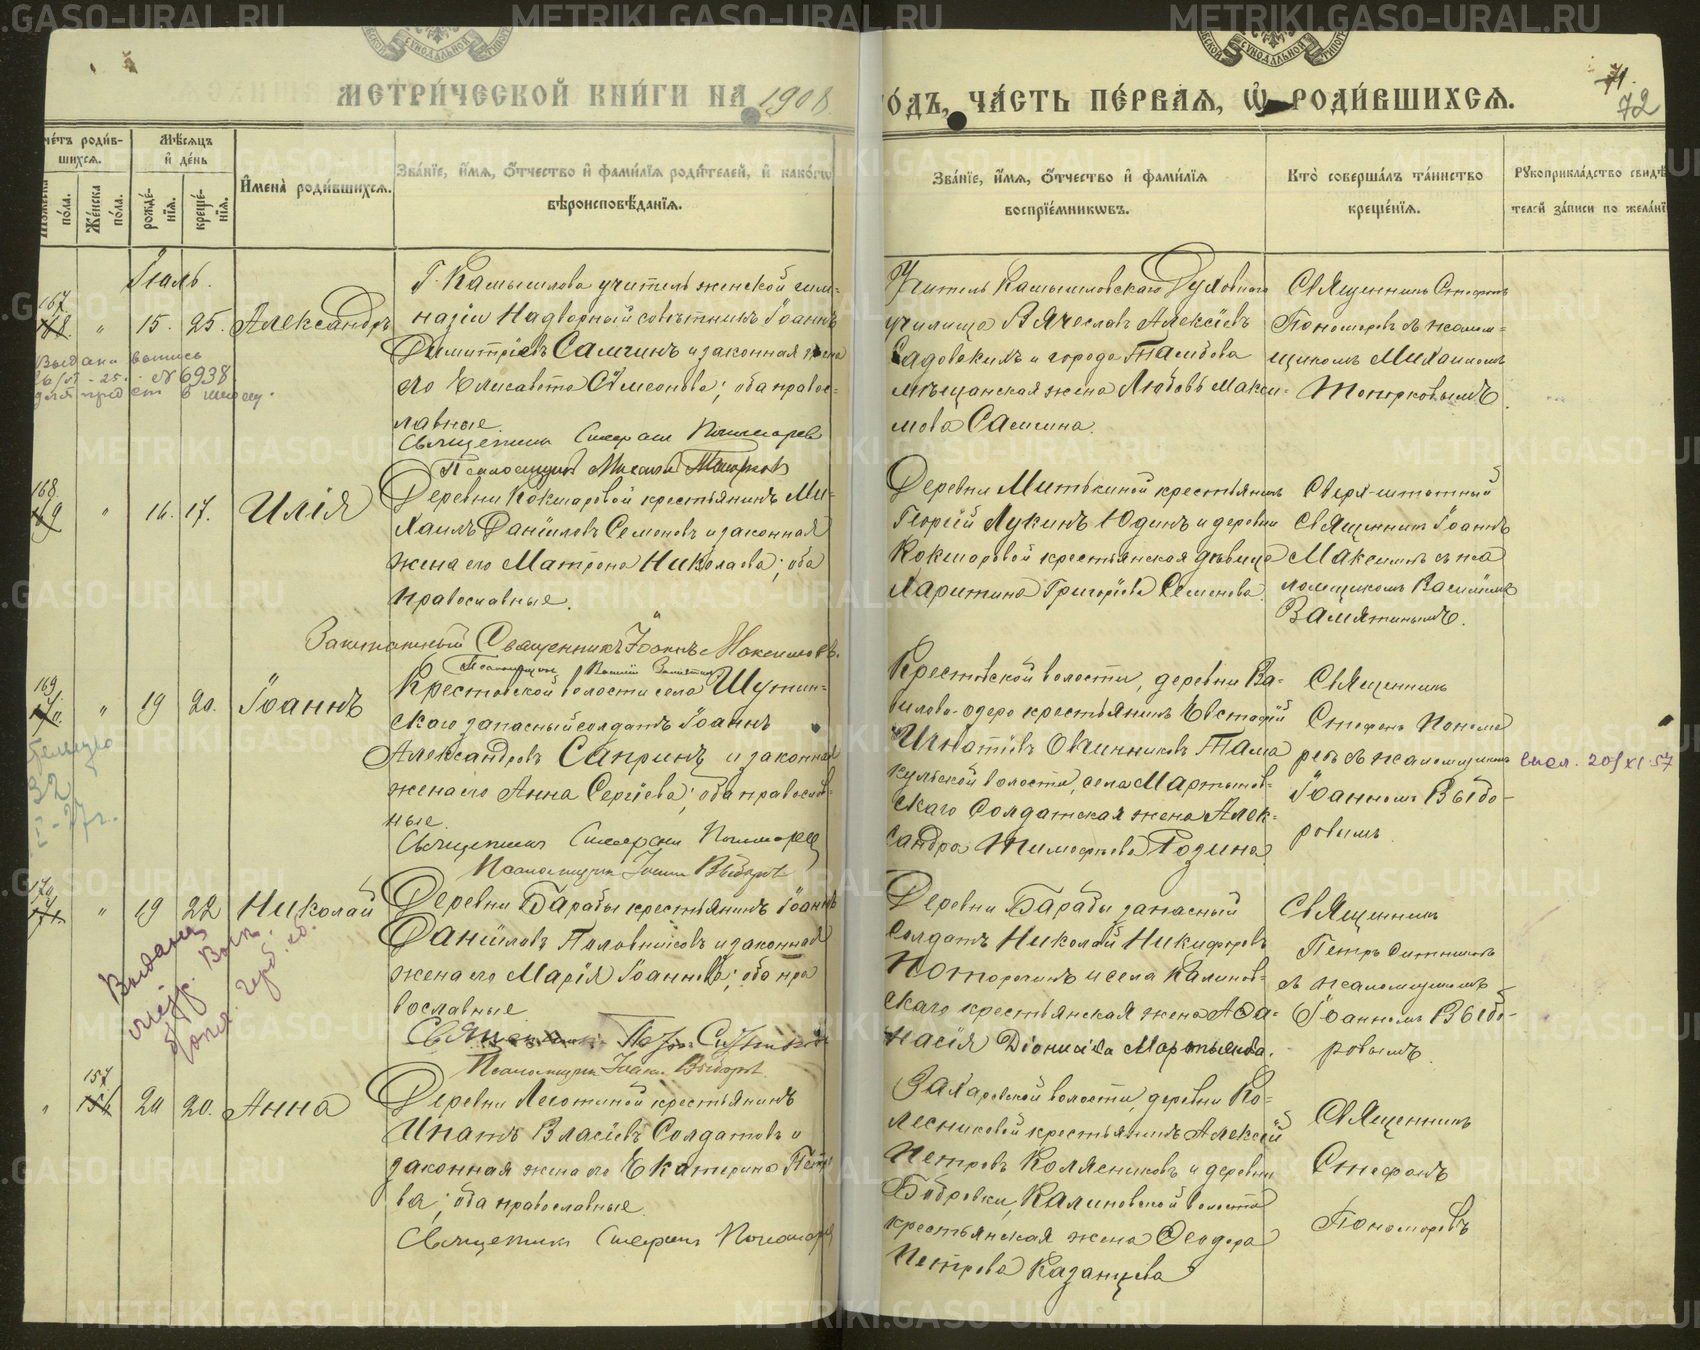 МЕТРИ́ЧЕСКОЙ КНИ́ГИ НА 1908
ГО́ДЪ, ЧА́СТЬ ПЕ́РВАЯ, Ѡ РОДИ́ВШИХСЯ.
71
72
Сче́тъ роди́в-
шихся.
Мѣ́сяцъ
и де́нь
Му́жеска
по́ла.
Же́нска
по́ла.
рожде́-
нїя.
креще́-
нїя.
Имена̀ роди́вшихся.
Зва́нїе, и́мя, о́тчество и фами́лїя роди́телей, и како́гѡ
вѣроисповѣ́данїя.
Зва́нїе, и́мя, о́тчество и фами́лїя
воспрїе́мникѡвъ.
Кто̀ соверша́лъ та́инство
креще́нїя.
Рꙋкоприкла́дство свидѣ́
телей за́писи по жела́нї
Іюль.
167
168. " 15. 25. Александръ
Выдана выпись
26/VI - 25. № 6938
для пред ст в школу.
Г. Камышлова учитель женской гим-
назіи Надворный совѣтникъ Іоаннъ
Димитріевъ Самчинъ и законная жена
его Елисавета Сѵмеонова; оба право-
славные.
Священникъ Стефанъ Пономаревъ
Псаломщикъ Михаилъ Топорковъ
Учитель Камышловскаго Духовнаго
училища Вячеславъ Алексіевъ
Садовскихъ и города Тамбова
мѣщанская жена Любовь Макси-
мова Самчина.
Священникъ Стефанъ
Пономаревъ съ псалом-
щикомъ Михаиломъ
Топорковымъ.
168
169 " 16. 17. Илія
Деревни Кокшаровой крестьянинъ Ми-
хаилъ Даніиловъ Семеновъ и законная
жена его Матрона Николаева; оба
православные.
Заштатный Священникъ Іоаннъ Максимовъ.
Псаломщикъ Василій Замятинъ
Деревни Митькиной крестьянинъ
Георгій Лукинъ Юдинъ и деревни
Кокшаровой крестьянская дѣвица
Харитина Григоріева Семенова.
Сверх-штатный
Священникъ Іоаннъ
Максимовъ съ пса
ломщикомъ Василіемъ
Замятинымъ.
169
170. " 19 20. Іоаннъ
32
I - 27 г.
Крестовской волости села Шутин-
скаго запасный солдатъ Іоаннъ
Александровъ Сапринъ и законная
жена его Анна Сергіева; оба православ-
ные.
Священникъ Стефанъ Пономаревъ
Псаломщикъ Іоаннъ Выборовъ
Крестовской волости, деревни Ва-
вилова-озеро крестьянинъ Евстафій
Игнатіевъ Овчинниковъ Тама
кульской волости, села Мартынов-
скаго Солдатская жена Алек-
сандра Тимофеева Розина.
Священникъ
Стефанъ Понома
ревъ съ псаломщикомъ
Іоанномъ Выбо-
ровымъ
20/XI 57
170
171. " 19 22 Николай
Выдана
Деревни Барабы крестьянинъ Іоаннъ
Даніиловъ Половниковъ и законная
жена его Марія Іоаннова; оба пра
вославные.
Священникъ Петръ Ситниковъ
Псаломщикъ Іоаннъ Выборовъ.
Деревни Барабы запасный
солдатъ Николай Никифоровъ
Поторочинъ и села Калинов-
скаго крестьянская жена Аѳа-
насія Діонисіева Мартынова.
Священникъ
Петръ Ситниковъ
съ псаломщикомъ
Іоанномъ Выбо-
ровымъ.
157
" 156 20 20. Анна
Деревни Леготиной крестьянинъ
Ипатъ Власіевъ Солдатовъ и
законная жена его Екатерина Петро
ва; оба православные.
Священникъ Стефанъ Пономаревъ
Захаровской волости, деревни Ко-
лесниковой крестьянинъ Алексій
Петровъ Колясниковъ и деревни
Бобровки, Калиновской волости
крестьянская жена Ѳеодора
Петрова Казанцева
Священникъ
Стефанъ
Пономаревъ
METRIKI.GASO-URAL.RU